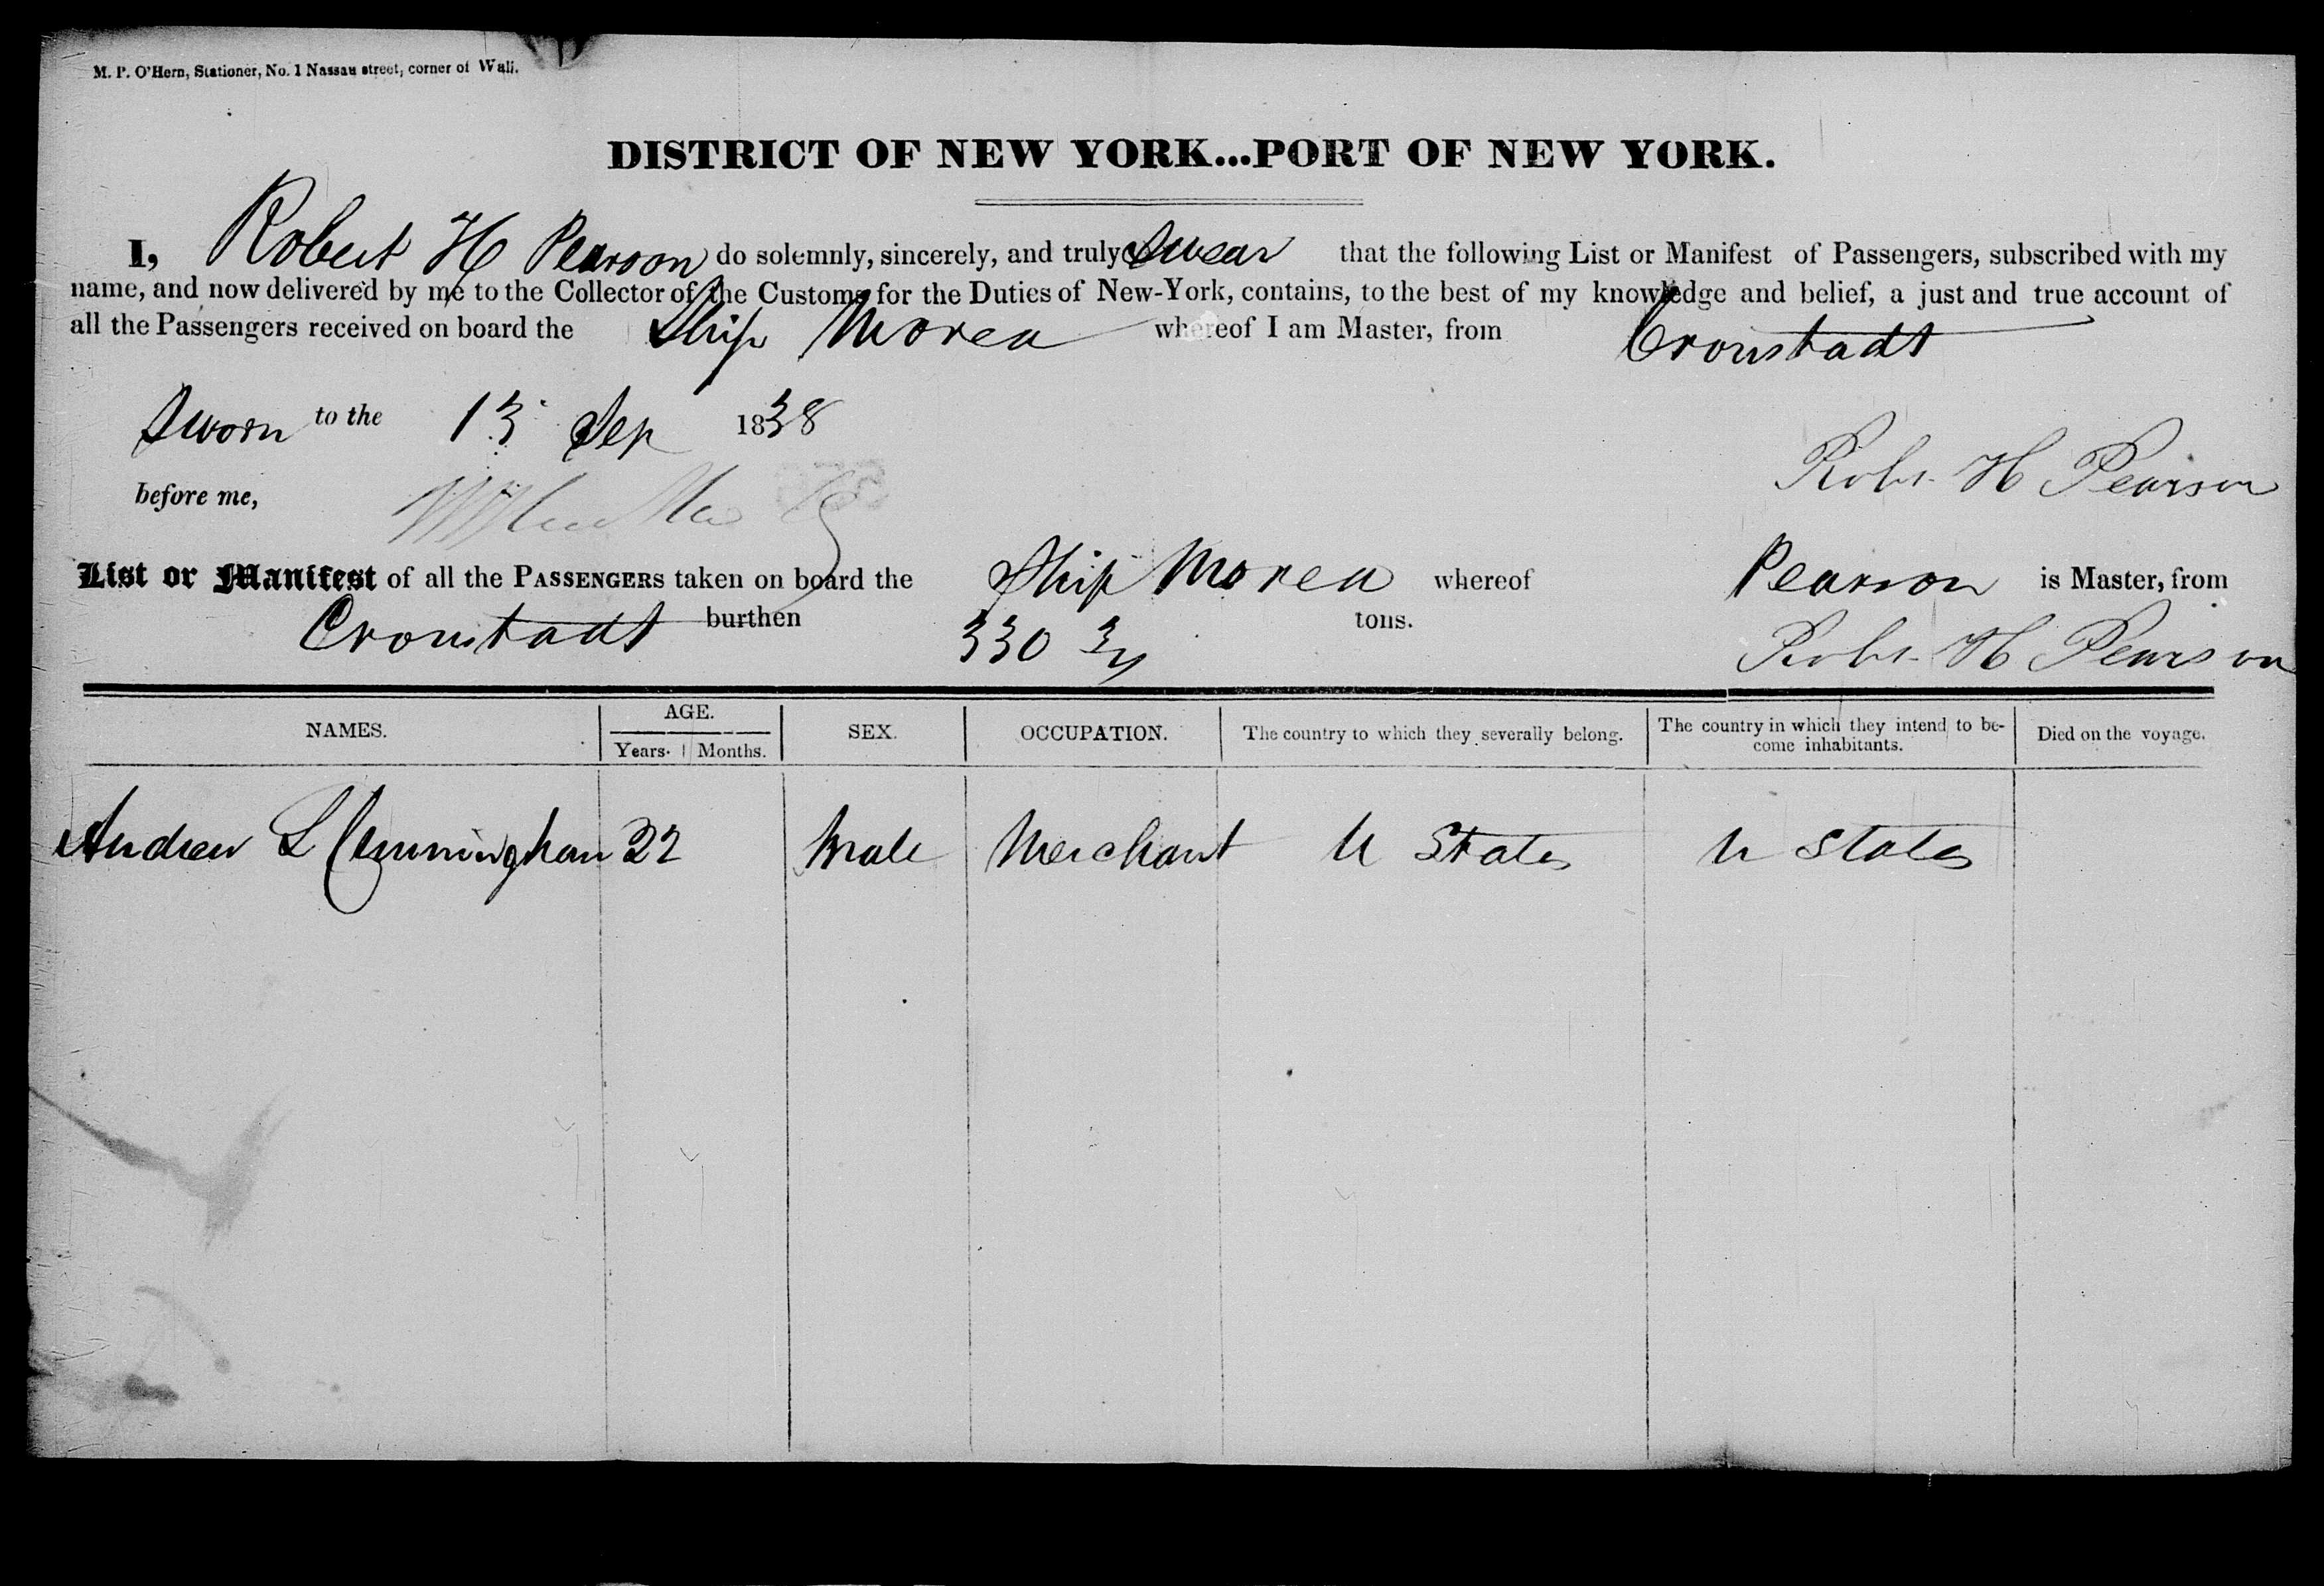 M. P. O'Hern, Stationer, No. 1 Nassau street, corner of Wall.
DISTRICT OF NEW YORK...PORT OF NEW YORK.
I, Robert H Pearson do solemnly, sincerely, and truly Swear that the following List or Manifest of Passengers, subscribed with my
name, and now delivered by me to the Collector of the Customs for the Duties of New-York, contains, to the best of my knowledge and belief, a just and true account of
all the Passengers received on board the Ship Morea whereof I am Master, from Cronstadt
Sworn to the 13 Sep 1838
Robt. H Pearson
before me,
List or Manifest of all the PASSENGERS taken on board the Ship Morea whereof Pearson is Master, from
Cronstadt burthen 330 3/4 tons.
Robt. H Pearson
NAMES. AGE. SEX. OCCUPATION. The country to which they severally belong. The country in which they intend to be-
come inhabitants. Died on the voyage.
Years. Months.
Andrew L Cunningham 22 Male Merchant U States U States